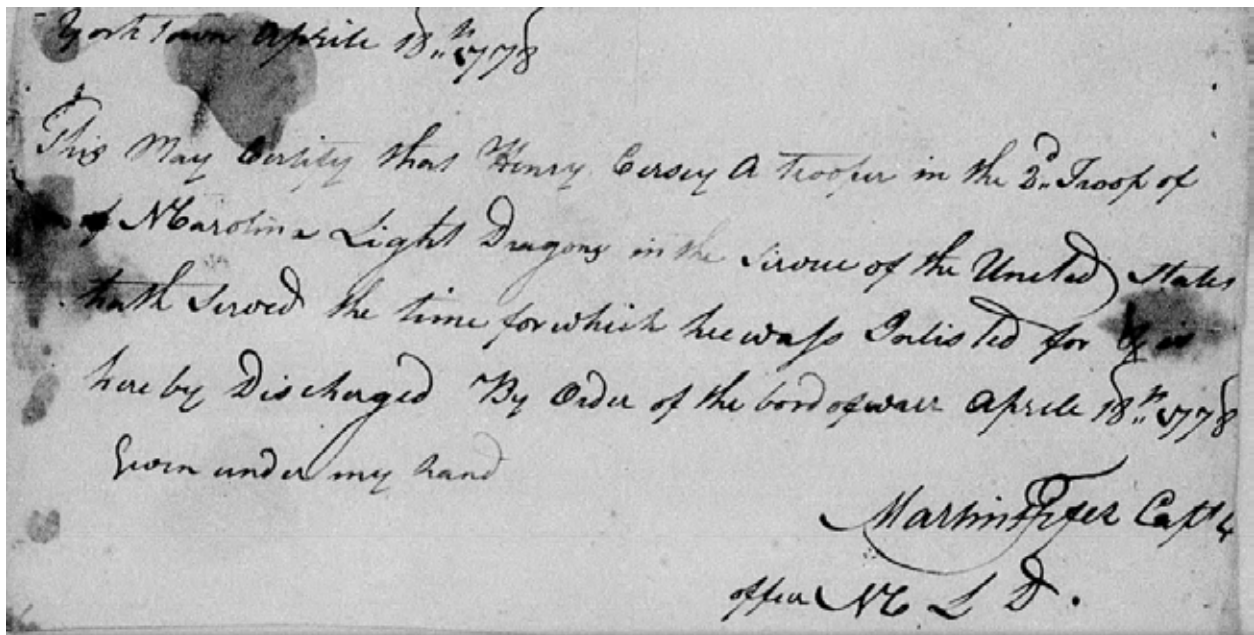 York Town Aprile 18th 1778
This May Certify that Henry Cersey A trooper in the 2d Troop of
of N Carolina Light Dragons in the Servue of the Uneted States
hath Served the time for which hee wass Inlisted for & is
here by Discharged By Order of the bord of warr Aprile 18th 1778
Given under my hand
Martin Fifer Capt
N C L D.